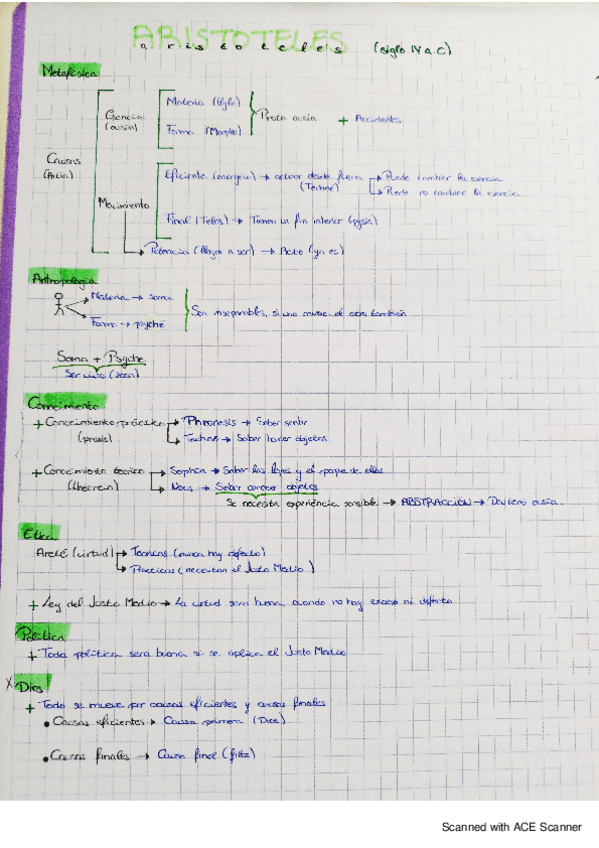 ARISTOTELES
aristoteles (siglo IV a.C)
Metafísica
Causas
(Aitia)
Esencia
(ousía)
Materia (Hyle)
Forma (Morphe)
Prote ousía + Accidentes
Movimiento
Eficiente → actuar desde fuera
(Techné)
Puede cambiar la esencia
Puede no cambiar la esencia
Final (Telos) → Tienen un fin interior (pysis)
Potencia (llegar a ser) → Acto (ya es)
Antropología
Materia → soma
Forma → psyché
Son inseparables, si uno muere el otro también
Soma + Psyche
Ser vivo (zoon)
Conocimiento
+ Conocimiento práctico
(praxis)
Phronesis → Saber
Techne → Saber hacer objetos
+ Conocimiento teorico
(theorein)
Sophia → Saber las leyes y el porque de ellas
Nous → Saber conocer objetos
Se necesita experiencia sensible → ABSTRACCIÓN → Deutero ousía
Etica
Areté (virtud)
Teoricas (nunca hay defecto)
Practicas (necesitan el Justo Medio)
+ Ley del Justo Medio → La virtud sera buena cuando no hay exceso ni defecto
Política
+ Toda política sera buena si se aplica el Justo Medio
X Dios
+ Todo se mueve por causas eficientes y causas finales
• Causas eficientes → Causa primera (Dios)
• Causas finales → Causa final
Scanned with ACE Scanner